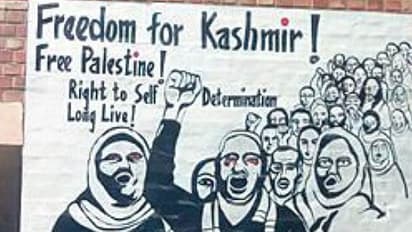 Freedom for Kashmir!
Free Palestine!
Right to Self Determination
Long Live!